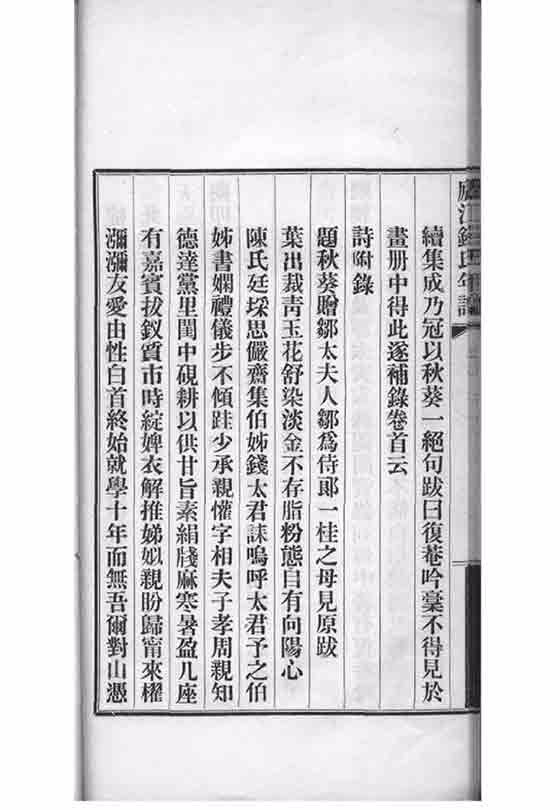 廬江錢氏年譜
續集成乃冠以秋葵一絕句跋曰復菴吟毫不得見於
畫册中得此遂補錄卷首云
詩附錄
題秋葵贈鄒太夫人鄒爲侍郞一桂之母見原跋
葉出裁靑玉花舒染淡金不存脂粉態自有向陽心
陳氏廷埰思儼齋集伯姊錢太君誄嗚呼太君予之伯
姊書嫻禮儀步不傾跬少承親懽字相夫子孝周親知
德達黨里閨中硯耕以供甘旨素絹牋麻寒暑盈几座
有嘉賓拔釵質市時綻婢衣解推娣姒親盼歸甯來櫂
瀰瀰友愛由性白首終始就學十年而無吾爾對山憑